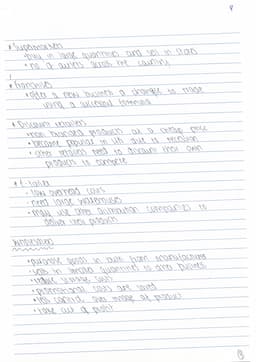 * Supermarkets
• buy in large quantities and sell in stores
• no. of outlets across the country
* franchises
• offer a new business a chance to trade using a successful formula
* Discount retailers
• non branded products at a cheap price
• became popular in UK due to recession
• other retailers need to discount their own products to compete
* E-tailer
- low overhead costs
- need large warehouses
- may use other distribution companies to deliver products
Wholesalers
• purchase goods in bulk from manufacturers
• sells in smaller quantities to other business
• reduce storage costs
• promotional costs are saved
• less control over image of product
• take cut of profit